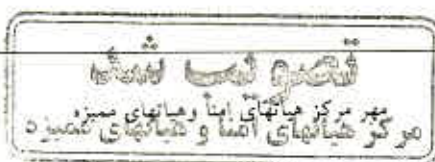 تصویب شد
مهر مرکز هیأتهای امنا وهیأتهای ممیزه
مرکز هیأتهای امنا و هیأتهای ممیزه